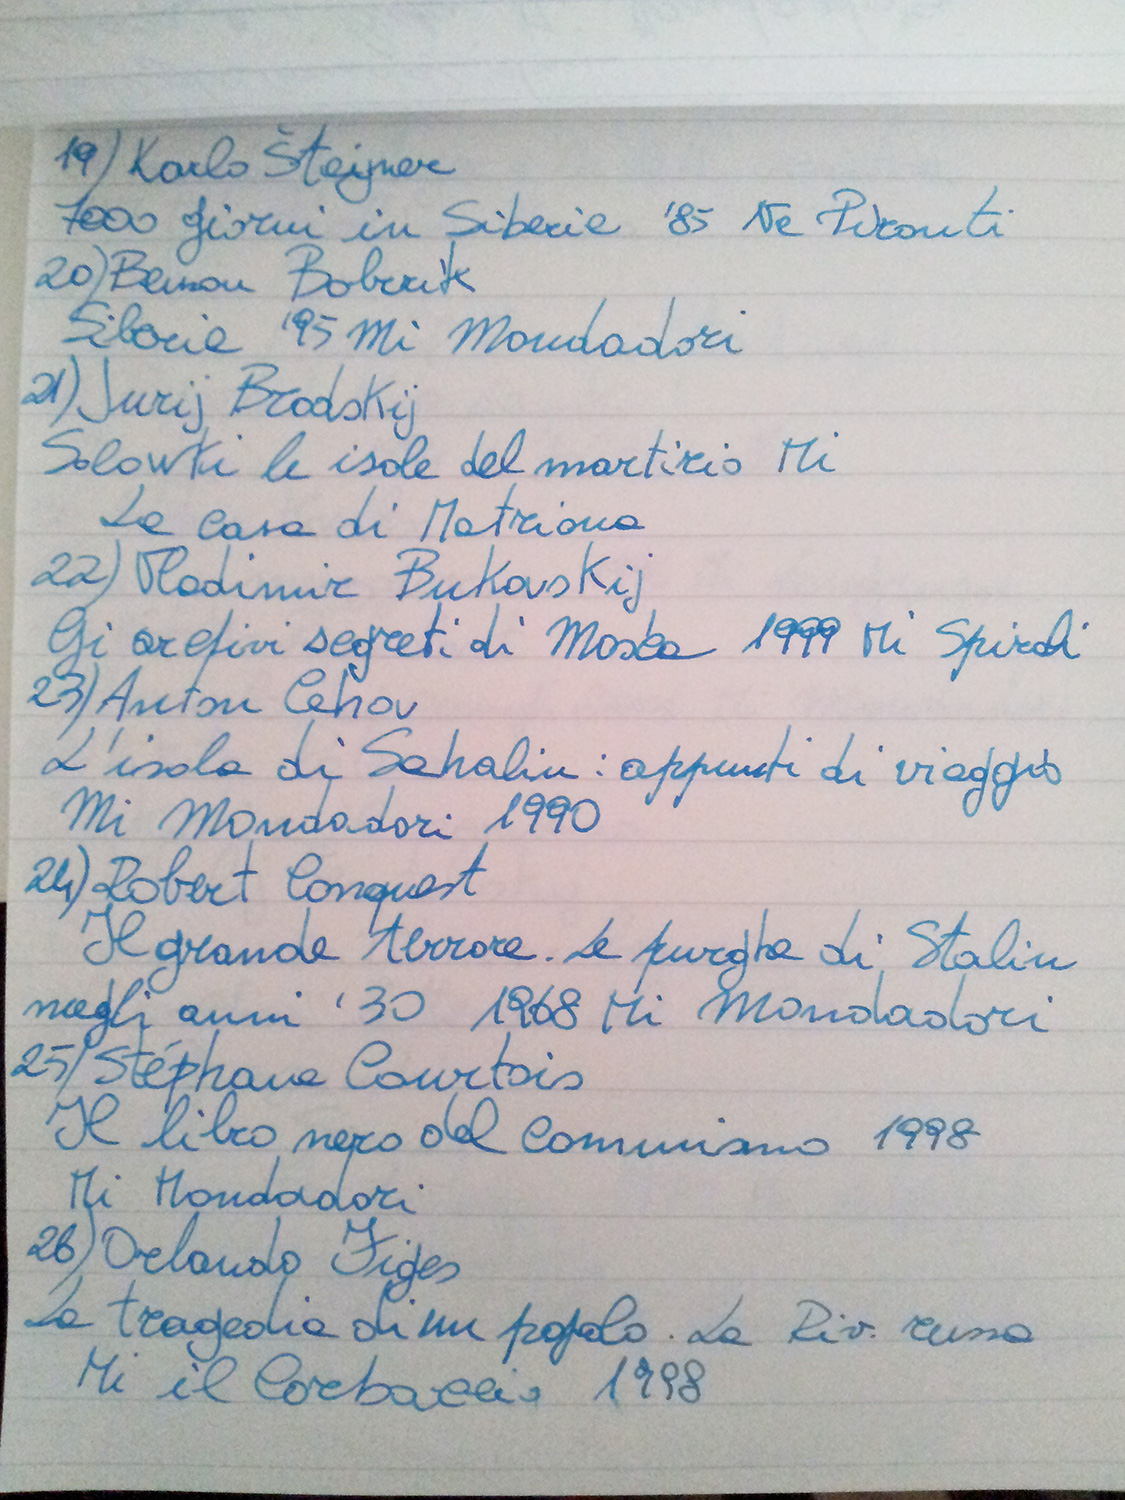 19) Karlo Štajner
7000 giorni in Siberia '85 Na Pironti
20) Benson Bobrick
Siberia '95 Mi Mondadori
21) Jurij Brodskij
Solowki le isole del martirio Mi
La casa di Matriona
22) Vladimir Bukovskij
Gi archivi segreti di Mosca 1999 Mi Spirali
23) Anton Cehov
L'isola di Sahalin : appunti di viaggio
Mi Mondadori 1990
24) Robert Conquest
Il grande terrore. Le purghe di Stalin
negli anni '30 1968 Mi Mondadori
25) Stéphane Courtois
Il libro nero del comunismo 1998
Mi Mondadori
26) Orlando Figes
La tragedia di un popolo. La Riv. russa
Mi il Corbaccio 1998